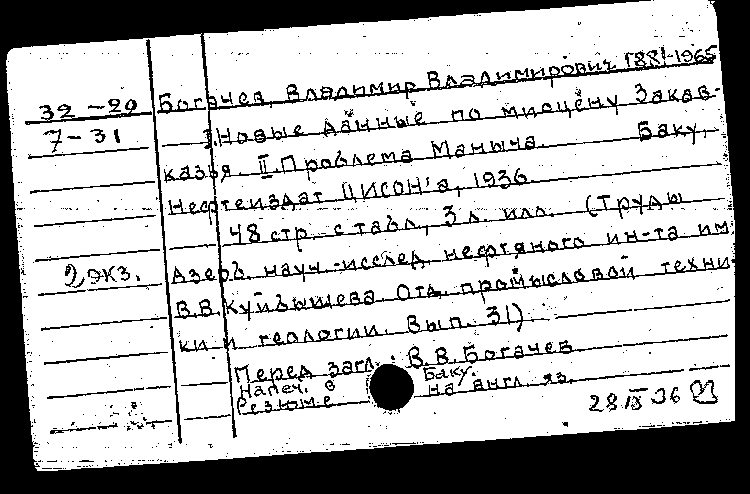 32-20 Богачев, Владимир Владимирович 1881-1965
7-31 I. Новые данные по миоцену Закав-
казья. II. Проблема Маныча. Баку,
Нефтеиздат ЦИСОН'а, 1936.
48 стр. с табл, 3 л. илл. (Труды
2 экз. Азерб. науч.-исслед. нефтяного ин-та им.
В.В. Куйбышева. Отд. промысловой техни-
ки и геологии. Вып. 31).
Перед загл.: В.В. Богачев
Напеч. в Баку.
Резюме на англ. яз.
28 IX 36